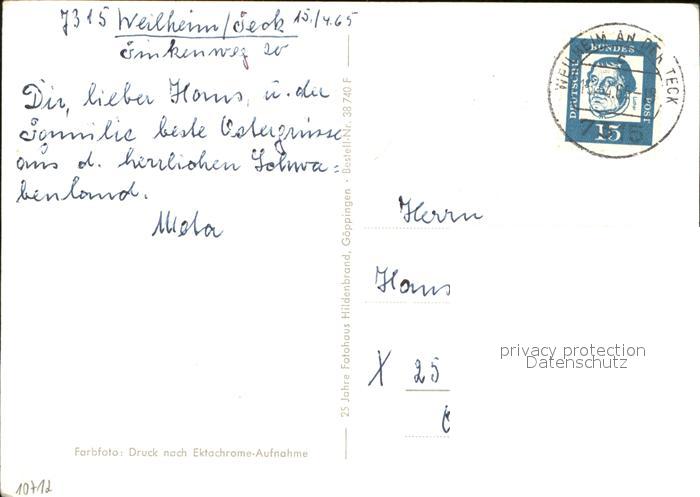 7315 Weilheim/Teck 15./4.65
Finkenweg 20
Dir, lieber Hans, u. der
Familie beste Ostergrüsse
aus d. herrlichen Schwa=
benland.
Meta
25 Jahre Fotohaus Hildenbrand, Göppingen · Bestell-Nr. 38 740 F
WEILHEIM AN DER TECK
DEUTSCHE BUNDESPOST
15
7315
Herrn
Hans
X 25
privacy protection
Datenschutz
Farbfoto: Druck nach Ektachrome-Aufnahme
10712